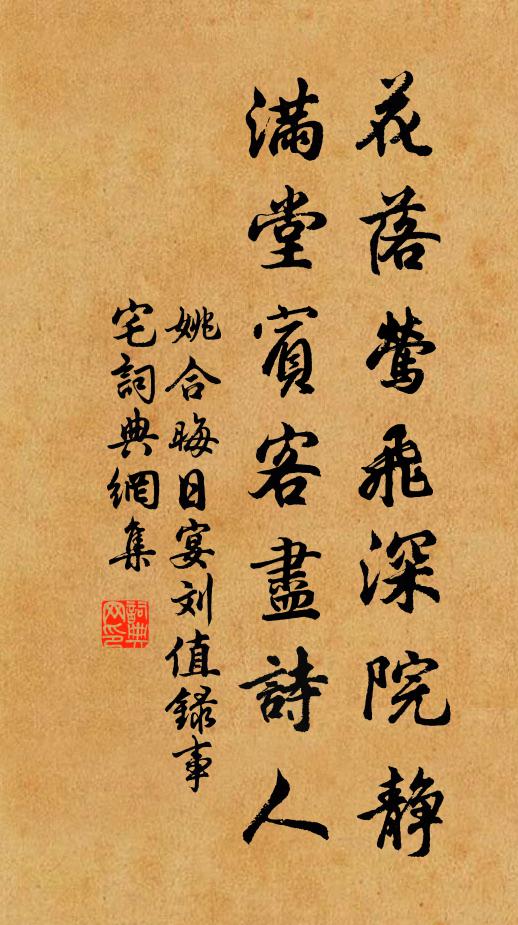 花落莺飛深院静
滿堂賓客盡詩人
姚合晦日宴刘值録事
宅詞典網集
詞典网印